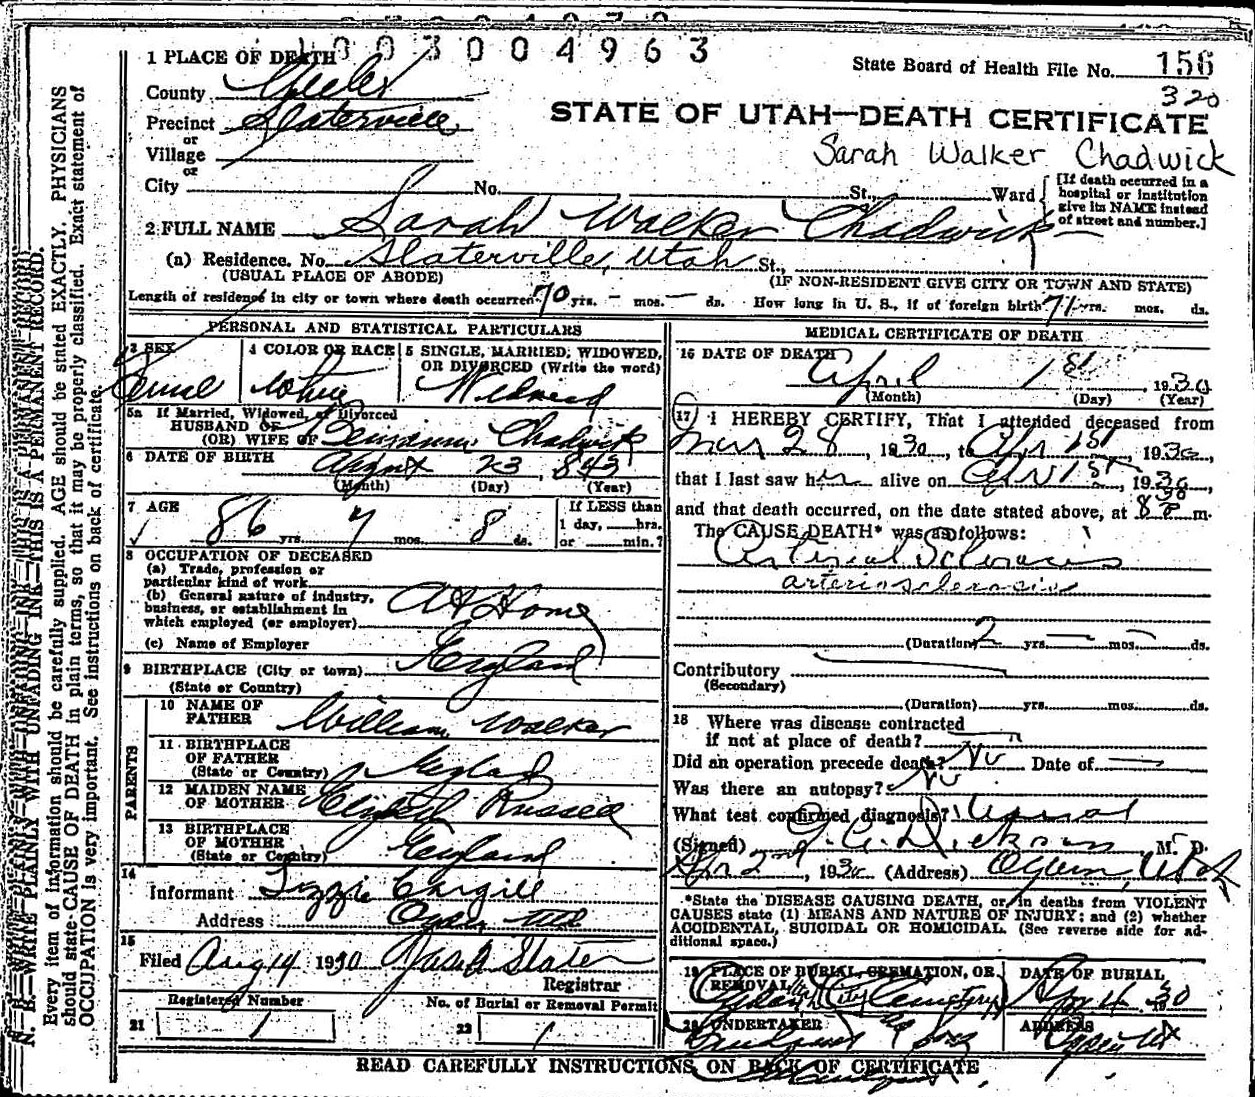 1003004963
1 PLACE OF DEATH
State Board of Health File No. 156
320
County
Precinct Slaterville
or
Village
or
STATE OF UTAH—DEATH CERTIFICATE
Sarah Walker Chadwick
City No. St., Ward
[If death occurred in a hospital or institution give its NAME instead of street and number.]
2 FULL NAME Sarah Walker Chadwick
(a) Residence. No. Slaterville, Utah St.,
(USUAL PLACE OF ABODE) (IF NON-RESIDENT GIVE CITY OR TOWN AND STATE)
Length of residence in city or town where death occurred 70 yrs. — mos. — ds. How long in U. S., if of foreign birth 71 yrs. mos. ds.
PERSONAL AND STATISTICAL PARTICULARS
3 SEX
4 COLOR OR RACE White
5 SINGLE, MARRIED, WIDOWED, OR DIVORCED (Write the word)
5a If Married, Widowed, or Divorced
HUSBAND OF
(OR) WIFE OF Benjamin Chadwick
6 DATE OF BIRTH August 23, 1843
(Month) (Day) (Year)
7 AGE 86 yrs. 7 mos. 8 ds.
If LESS than
1 day, hrs.
or min.?
8 OCCUPATION OF DECEASED
(a) Trade, profession or
particular kind of work
(b) General nature of industry,
business, or establishment in
which employed (or employer) At Home
(c) Name of Employer
9 BIRTHPLACE (City or town) England
(State or Country)
PARENTS
10 NAME OF
FATHER William Walker
11 BIRTHPLACE
OF FATHER
(State or Country) England
12 MAIDEN NAME
OF MOTHER Elizabeth Russell
13 BIRTHPLACE
OF MOTHER
(State or Country) England
14
Informant Lizzie Cargill
Address Ogden Utah
15
Filed Aug 14 1930 Slater
Registrar
Registered Number No. of Burial or Removal Permit
21 1 22 1
MEDICAL CERTIFICATE OF DEATH
16 DATE OF DEATH
April 1st, 1930
(Month) (Day) (Year)
17 I HEREBY CERTIFY, That I attended deceased from
Mar 28, 1930, to Apr 1st, 1930,
that I last saw her alive on Apr 1st, 1930,
and that death occurred, on the date stated above, at m.
The CAUSE DEATH* was as follows:
Arterial Sclerosis
arteriosclerosis
(Duration) 2 yrs. — mos. — ds.
Contributory
(Secondary)
(Duration) yrs. mos. ds.
18 Where was disease contracted
if not at place of death?
Did an operation precede death? No Date of —
Was there an autopsy? No
What test confirmed diagnosis? Usual
(Signed) M. D.
Apr 2nd, 1930 (Address) Ogden, Utah
*State the DISEASE CAUSING DEATH, or in deaths from VIOLENT
CAUSES state (1) MEANS AND NATURE OF INJURY; and (2) whether
ACCIDENTAL, SUICIDAL OR HOMICIDAL. (See reverse side for additional space.)
19 PLACE OF BURIAL, CREMATION, OR REMOVAL DATE OF BURIAL
Ogden City Cemetery Apr 4 1930
20 UNDERTAKER ADDRESS
& Sons Ogden Ut
READ CAREFULLY INSTRUCTIONS ON BACK OF CERTIFICATE
N. B.—WRITE PLAINLY WITH UNFADING INK—THIS IS A PERMANENT RECORD.
Every item of information should be carefully supplied. AGE should be stated EXACTLY. PHYSICIANS
should state CAUSE OF DEATH in plain terms, so that it may be properly classified. Exact statement of
OCCUPATION is very important. See instructions on back of certificate.